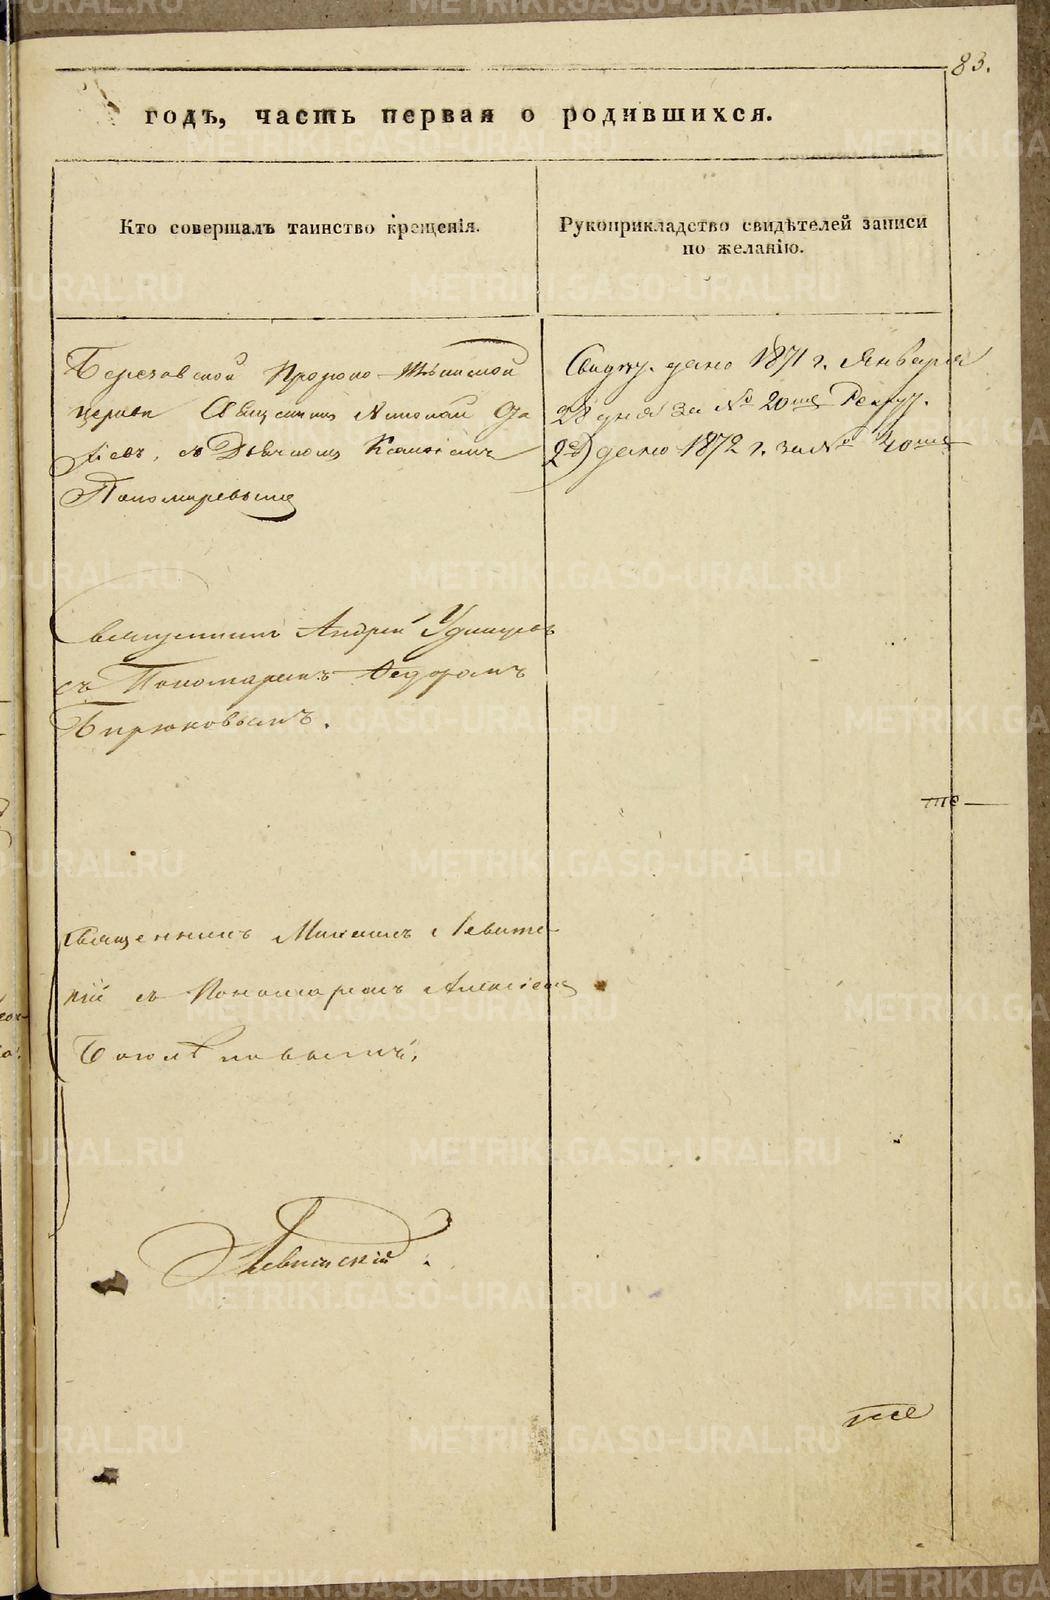 83.
годъ, часть первая о родившихся.
Кто совершалъ таинство крещенія.
Рукоприкладство свидѣтелей записи
по желанію.
Березовской Пророко-Ильинской
церкви Священникъ Николай
съ Дьячкомъ
Пономаревымъ
Свидѣт. дано 1871 г. Января
28 дня за № 20мъ Рекрут.
2е) дано 1872 г. за № 40мъ
Священникъ Андрей Удинцевъ
съ Пономаремъ Ѳедоромъ
Бирюковымъ.
Священникъ Михаилъ Левитс-
кій съ Пономаремъ Алексіемъ
Боголѣповымъ.
Левитскій.
METRIKI.GASO-URAL.RU